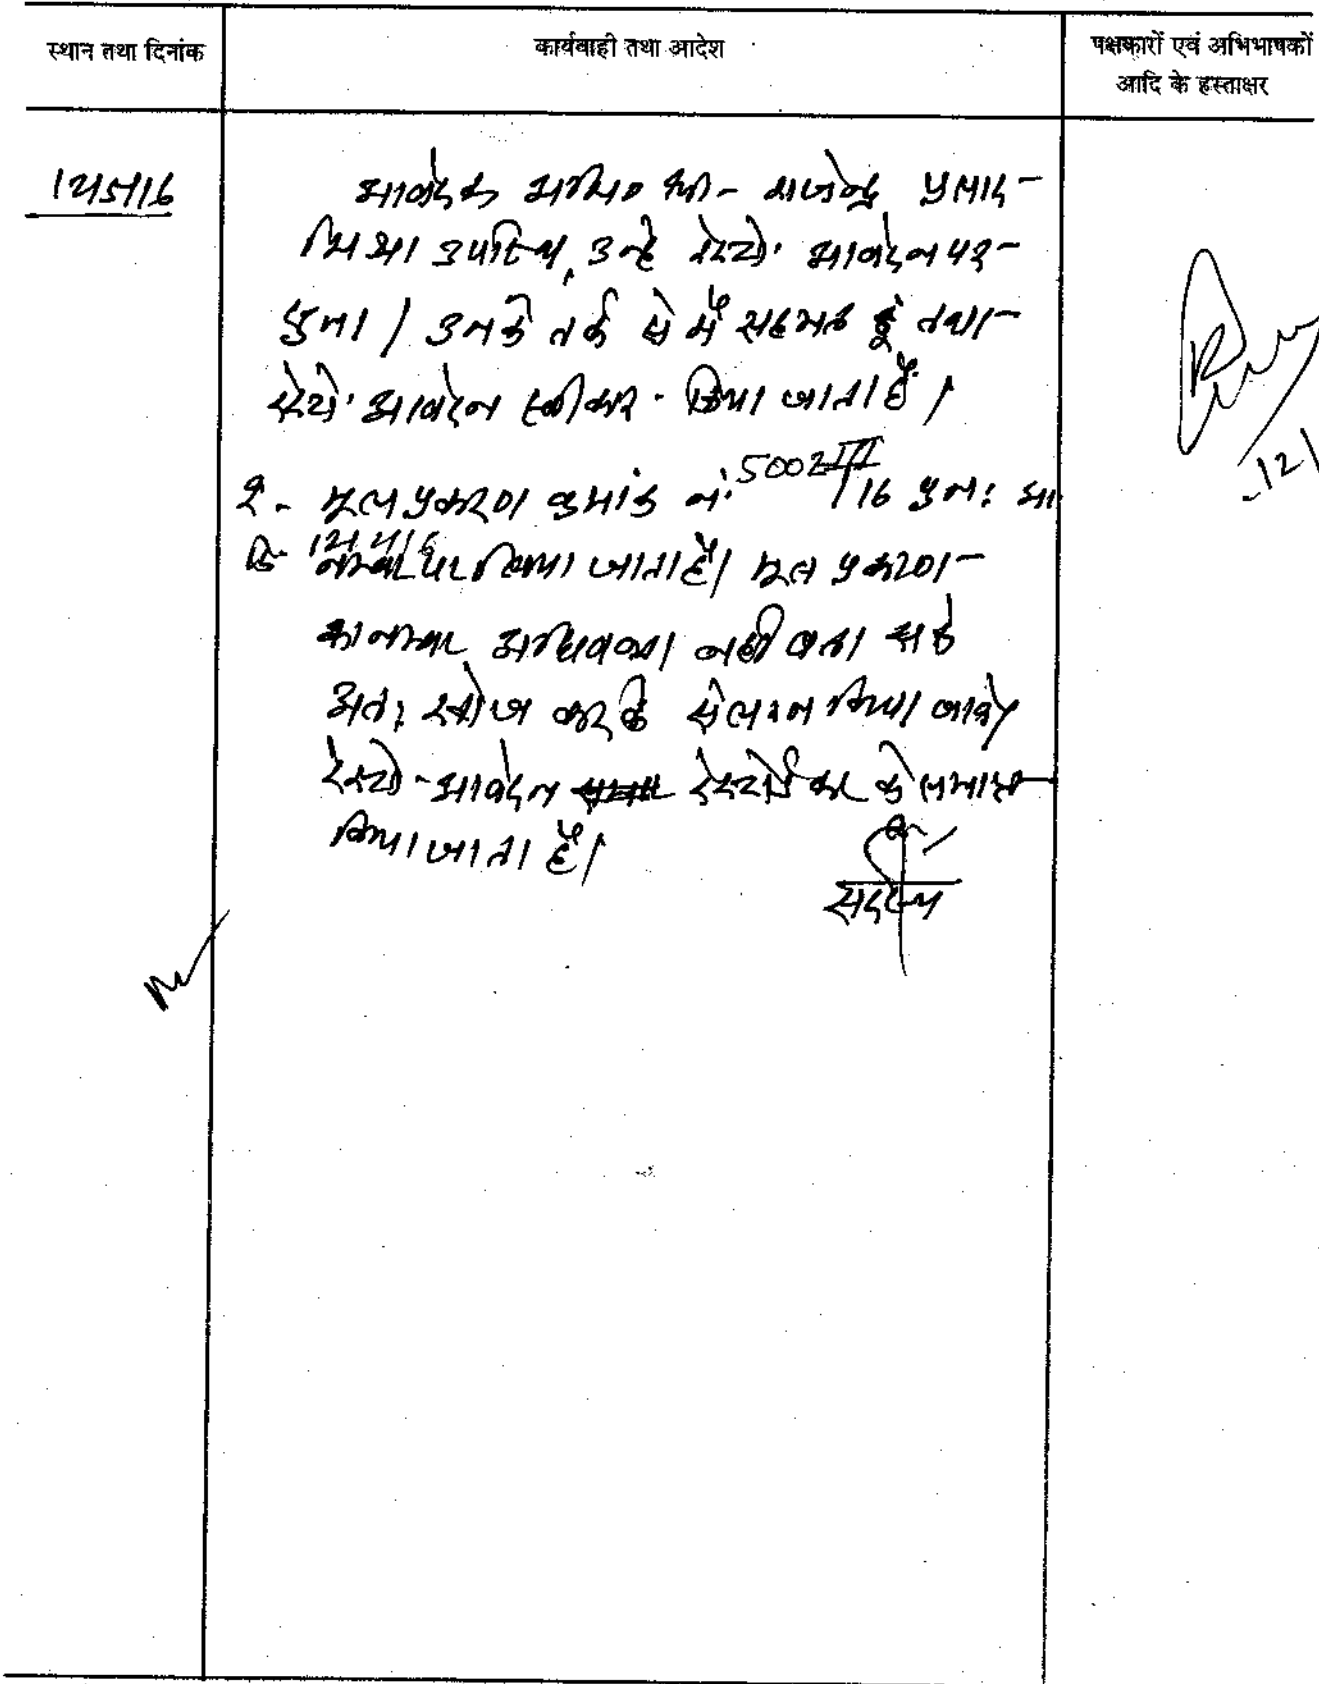 स्थान तथा दिनांक
कार्यवाही तथा आदेश
पक्षकारों एवं अभिभाषकों
आदि के हस्ताक्षर
आवेदक अभिभा० श्री - राजेन्द्र प्रसाद -
मिश्रा उपस्थित, उन्हे रेस्टो. आवेदन पर -
सुना। उनके तर्क से मैं सहमत हूं तथा -
रेस्टो. आवेदन स्वीकार - किया जाता है।
2 - मूल प्रकरण क्रमांक नं. 5002 III /16 पुनः
नम्बर पर लिया जाता है। मूल प्रकरण -
का नम्बर अधिवक्ता नही बता सके
अतः खोज कर के संलग्न किया जावे
रेस्टो - आवेदन रेस्टोर्ड कर के समाप्त -
किया जाता है।
सदस्य